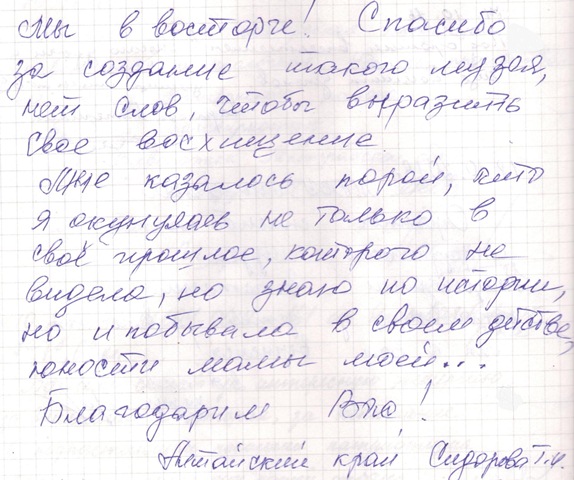 Мы в восторге! Спасибо
за создание такого музея,
нет слов, чтобы выразить
свое восхищение.
Мне казалось порой, что
я окунулась не только в
своё прошлое, которого не
видела, но знаю по истории,
но и побывала в своем детстве,
юности мамы моей...
Благодарим Вас!
Алтайский край Сидорова Т.